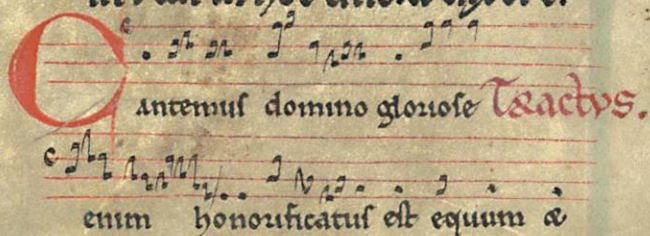 Cantemus domino gloriose Tractus.
enim honorificatus est equum &